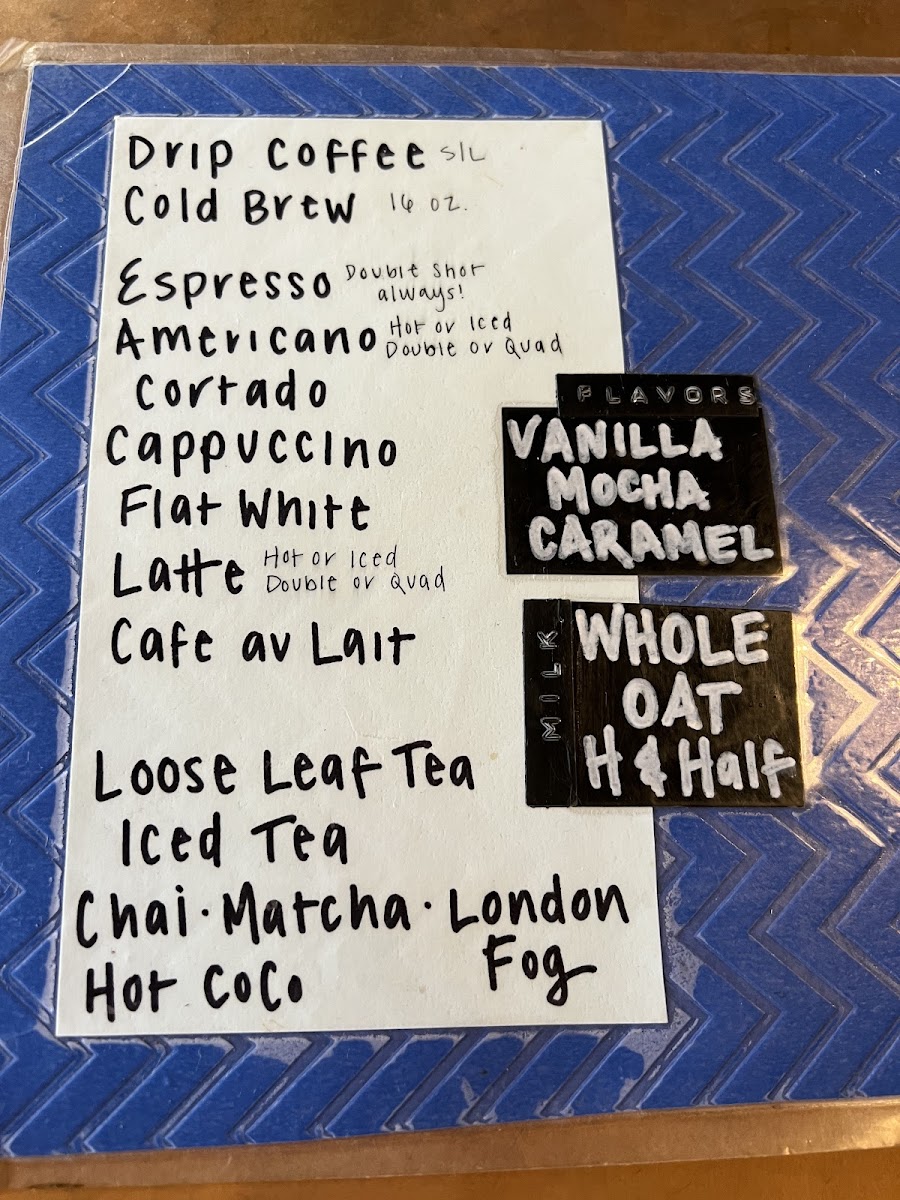 Drip Coffee S/L
Cold Brew 16 oz.
Espresso Double Shot
always!
Americano Hot or Iced
Double or Quad
Cortado
Cappuccino
Flat White
Latte Hot or Iced
Double or Quad
Cafe au Lait
Loose Leaf Tea
Iced Tea
Chai · Matcha · London
Fog
Hot CoCo
FLAVORS
VANILLA
MOCHA
CARAMEL
MILK
WHOLE
OAT
H & Half